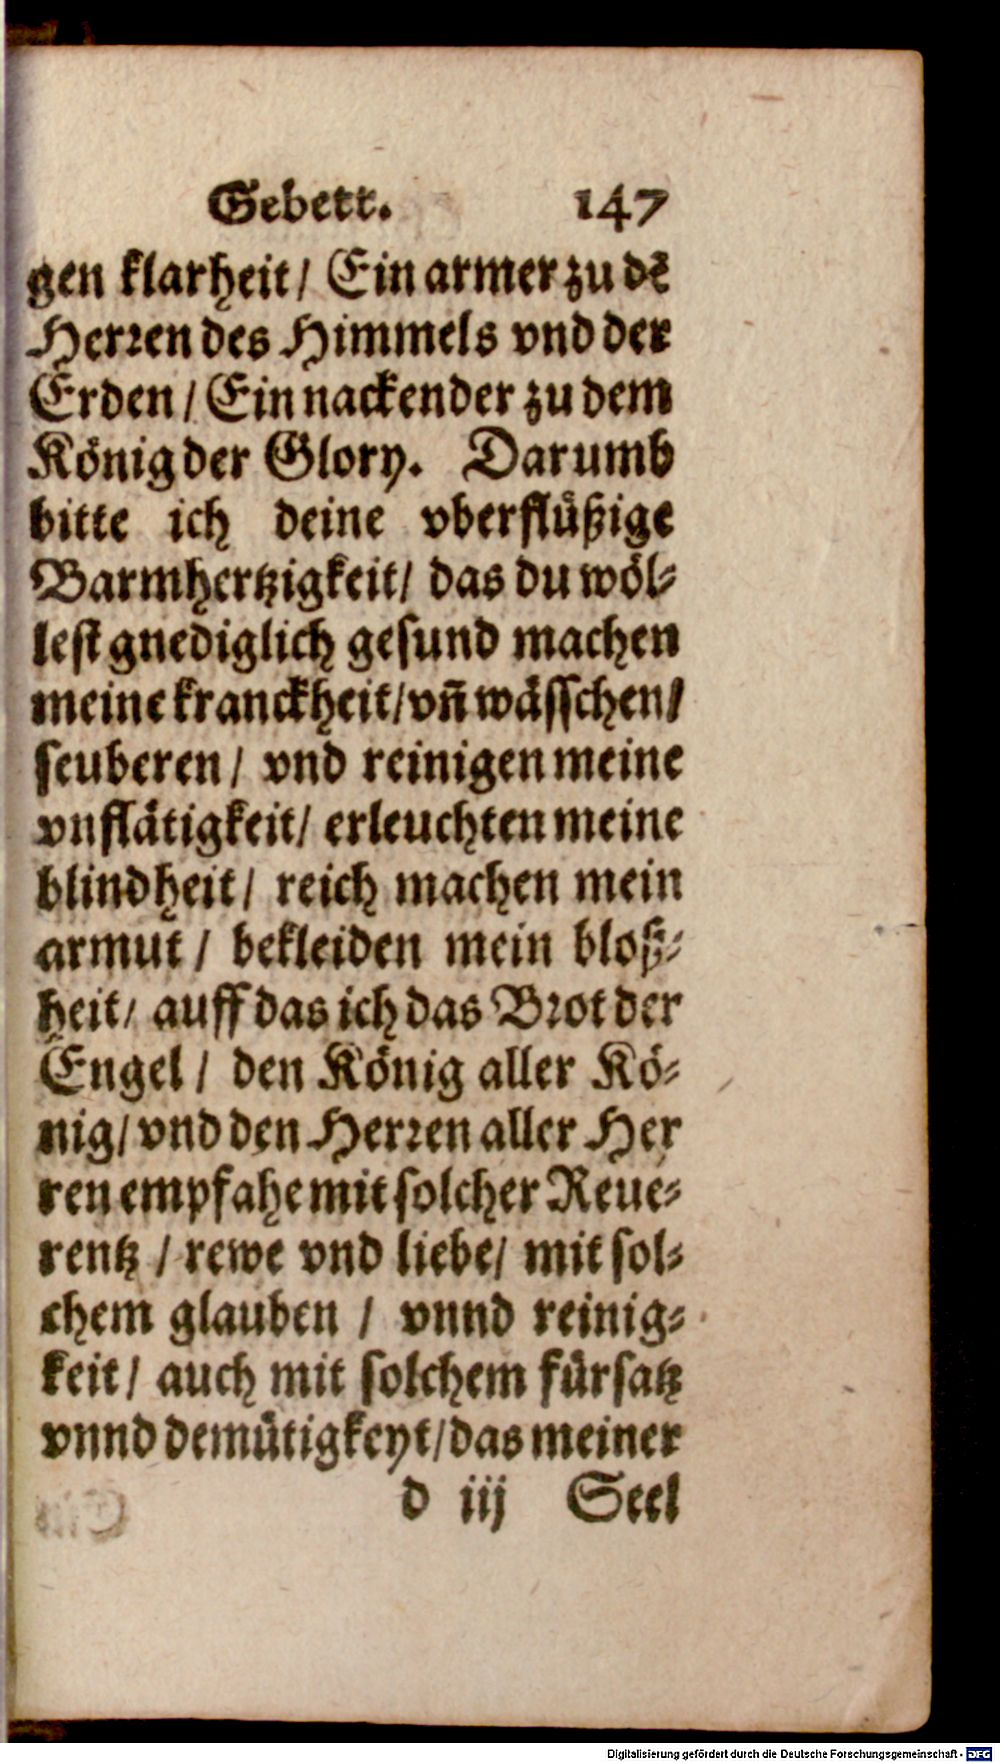 Gebett. 147
gen klarheit/ Ein armer zu dẽ
Herren des Himmels vnd der
Erden/ Ein nackender zu dem
König der Glory. Darumb
bitte ich deine vberflüßige
Barmhertzigkeit/ das du wöl-
lest gnediglich gesund machen
meine kranckheit/ vñ wässchen/
seuberen/ vnd reinigen meine
vnflätigkeit/ erleuchten meine
blindheit/ reich machen mein
armut/ bekleiden mein bloß-
heit/ auff das ich das Brot der
Engel/ den König aller Kö-
nig/ vnd den Herren aller Her
ren empfahe mit solcher Reue-
rentz/ rewe vnd liebe/ mit sol-
chem glauben/ vnnd reinig-
keit/ auch mit solchem fürsatz
vnnd demütigkeyt/ das meiner
d iij Seel
Digitalisierung gefördert durch die Deutsche Forschungsgemeinschaft - DFG